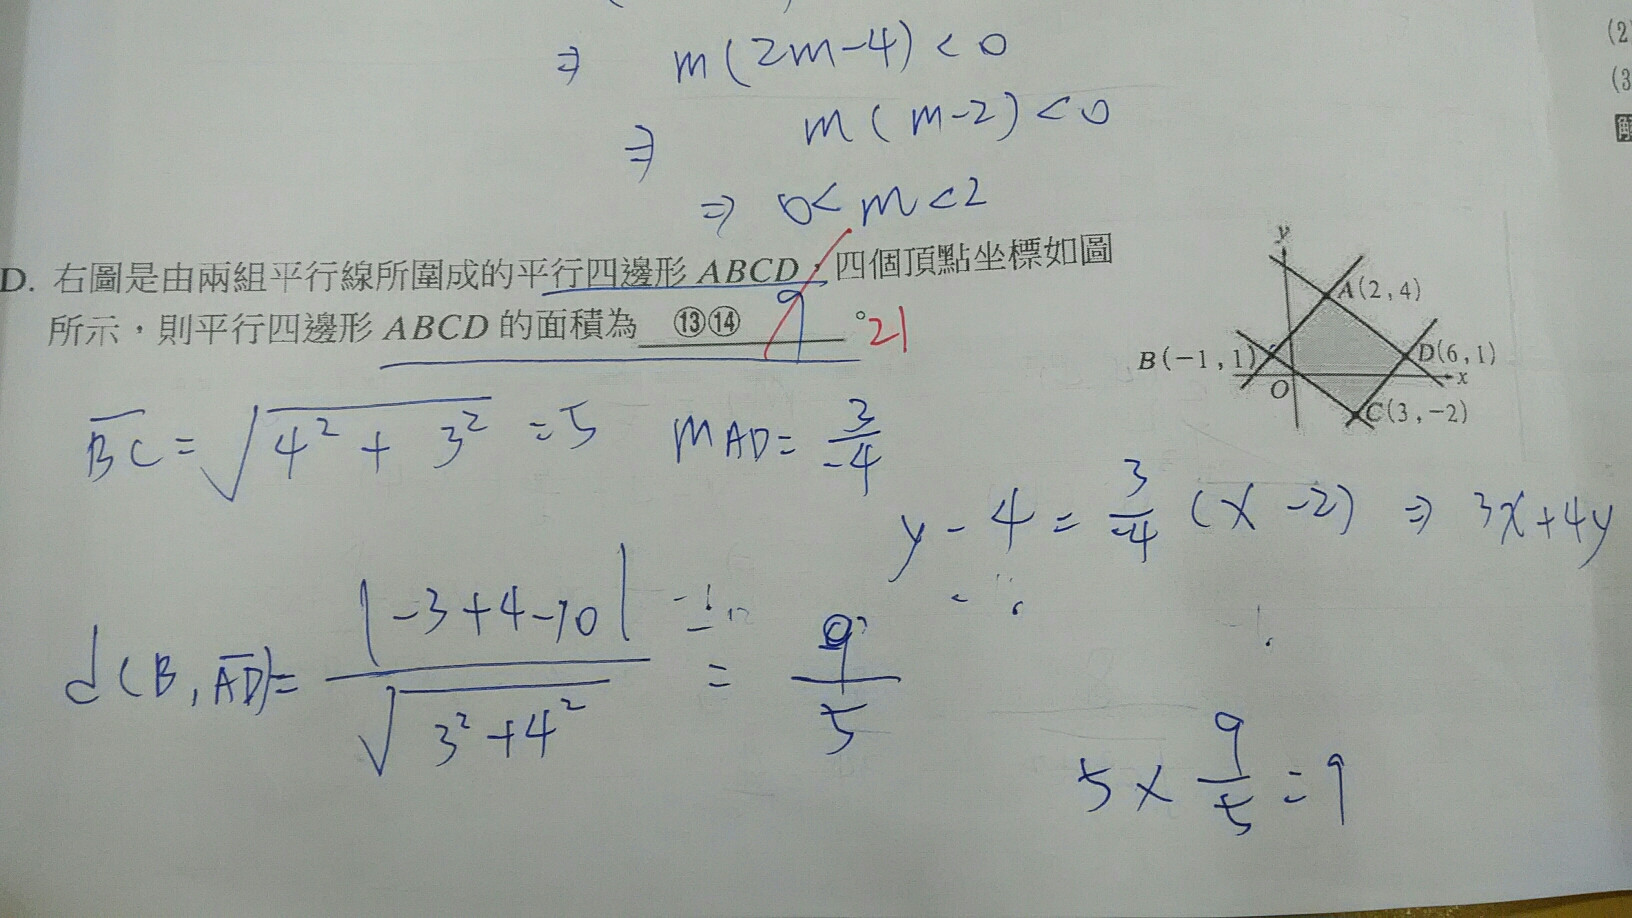 ⇒ m(2m-4)<0
⇒ m(m-2)<0
⇒ 0<m<2
D. 右圖是由兩組平行線所圍成的平行四邊形 ABCD,四個頂點坐標如圖
所示,則平行四邊形 ABCD 的面積為 ⑬⑭ 9 。21
y
A(2,4)
B(-1,1)
D(6,1)
x
O
C(3,-2)
BC=√4²+3²=5 mAD=3/-4
y-4=3/-4(x-2) ⇒ 3x+4y
d(B,AD)=|-3+4-10|/√3²+4²=9/5
5×9/5=9
(2)
(3
解